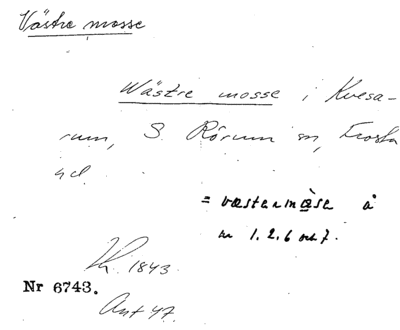 Västre mosse
Wästre mosse i Kvesa-
rum, S. Rörum sn, Frosta
hd
= væstermàse å
nr 1, 2, 6 och 7.
1843.
Nr 6743.
Ant 47.